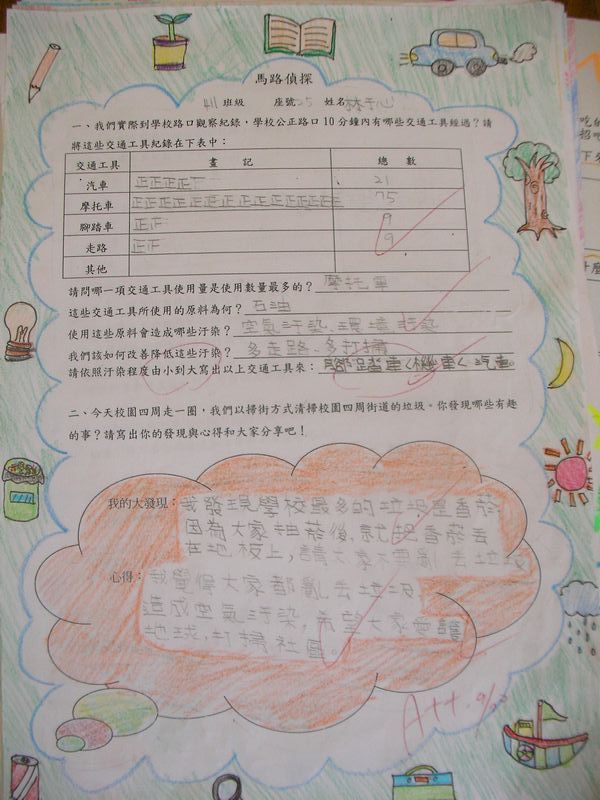 馬路偵探
411班級 座號25 姓名林于心
一、我們實際到學校路口觀察紀錄，學校公正路口10分鐘內有哪些交通工具經過？請
將這些交通工具紀錄在下表中：
交通工具 畫 記 總 數
汽車 正正正正下 21
摩托車 正正正正正正正正正正正正正正正 75
腳踏車 正正 9
走路 正正 9
其他
請問哪一項交通工具使用量是使用數量最多的？摩托車
這些交通工具所使用的原料為何？石油
使用這些原料會造成哪些汙染？空氣汙染、環境
我們該如何改善降低這些汙染？多走路、多打掃
請依照汙染程度由小到大寫出以上交通工具來：腳踏車<機車<汽車。
二、今天校園四周走一圈，我們以掃街方式清掃校園四周街道的垃圾。你發現哪些有趣
的事？請寫出你的發現與心得和大家分享吧！
我的大發現：我發現學校最多的垃圾是香菸
因為大家抽菸後，就把香菸丟
在地板上，請大家不要亂丟垃圾
心得：我覺得大家都亂丟垃圾，
造成空氣汙染，希望大家愛護
地球，打掃社區。
A++